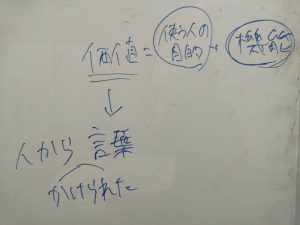 価値=使う人の目的+機能
↓
人から言葉
かけられた